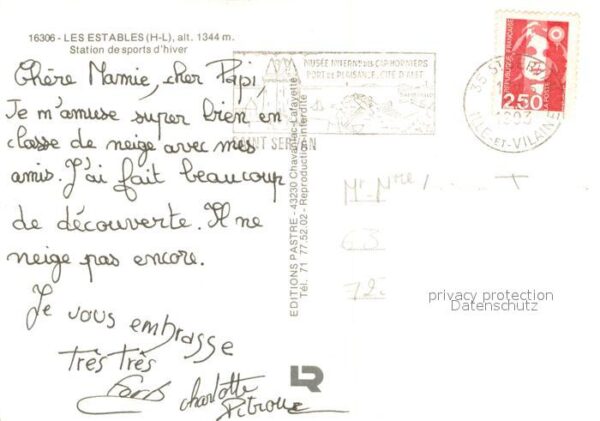 16306 - LES ESTABLES (H-L), alt. 1344 m.
Station de sports d'hiver
Chère Mamie, cher Papi,
Je m'amuse super bien en
classe de neige avec mes
amis. J'ai fait beaucoup
de découverte. Il ne
neige pas encore.
Je vous embrasse
très très
fort
charlotte
EDITIONS PASTRE - 43230 Chavaniac-Lafayette
Tél. 71 77.52.02 - Reproduction interdite
MUSÉE INTERN. DES CAP HORNIERS
PORT DE PLAISANCE, CITÉ D'ALET
SAINT SERVAN
REPUBLIQUE FRANÇAISE
2,50
35 ST
ILLE-ET-VILAINE
Mr Mme
63
72
privacy protection
Datenschutz
LR